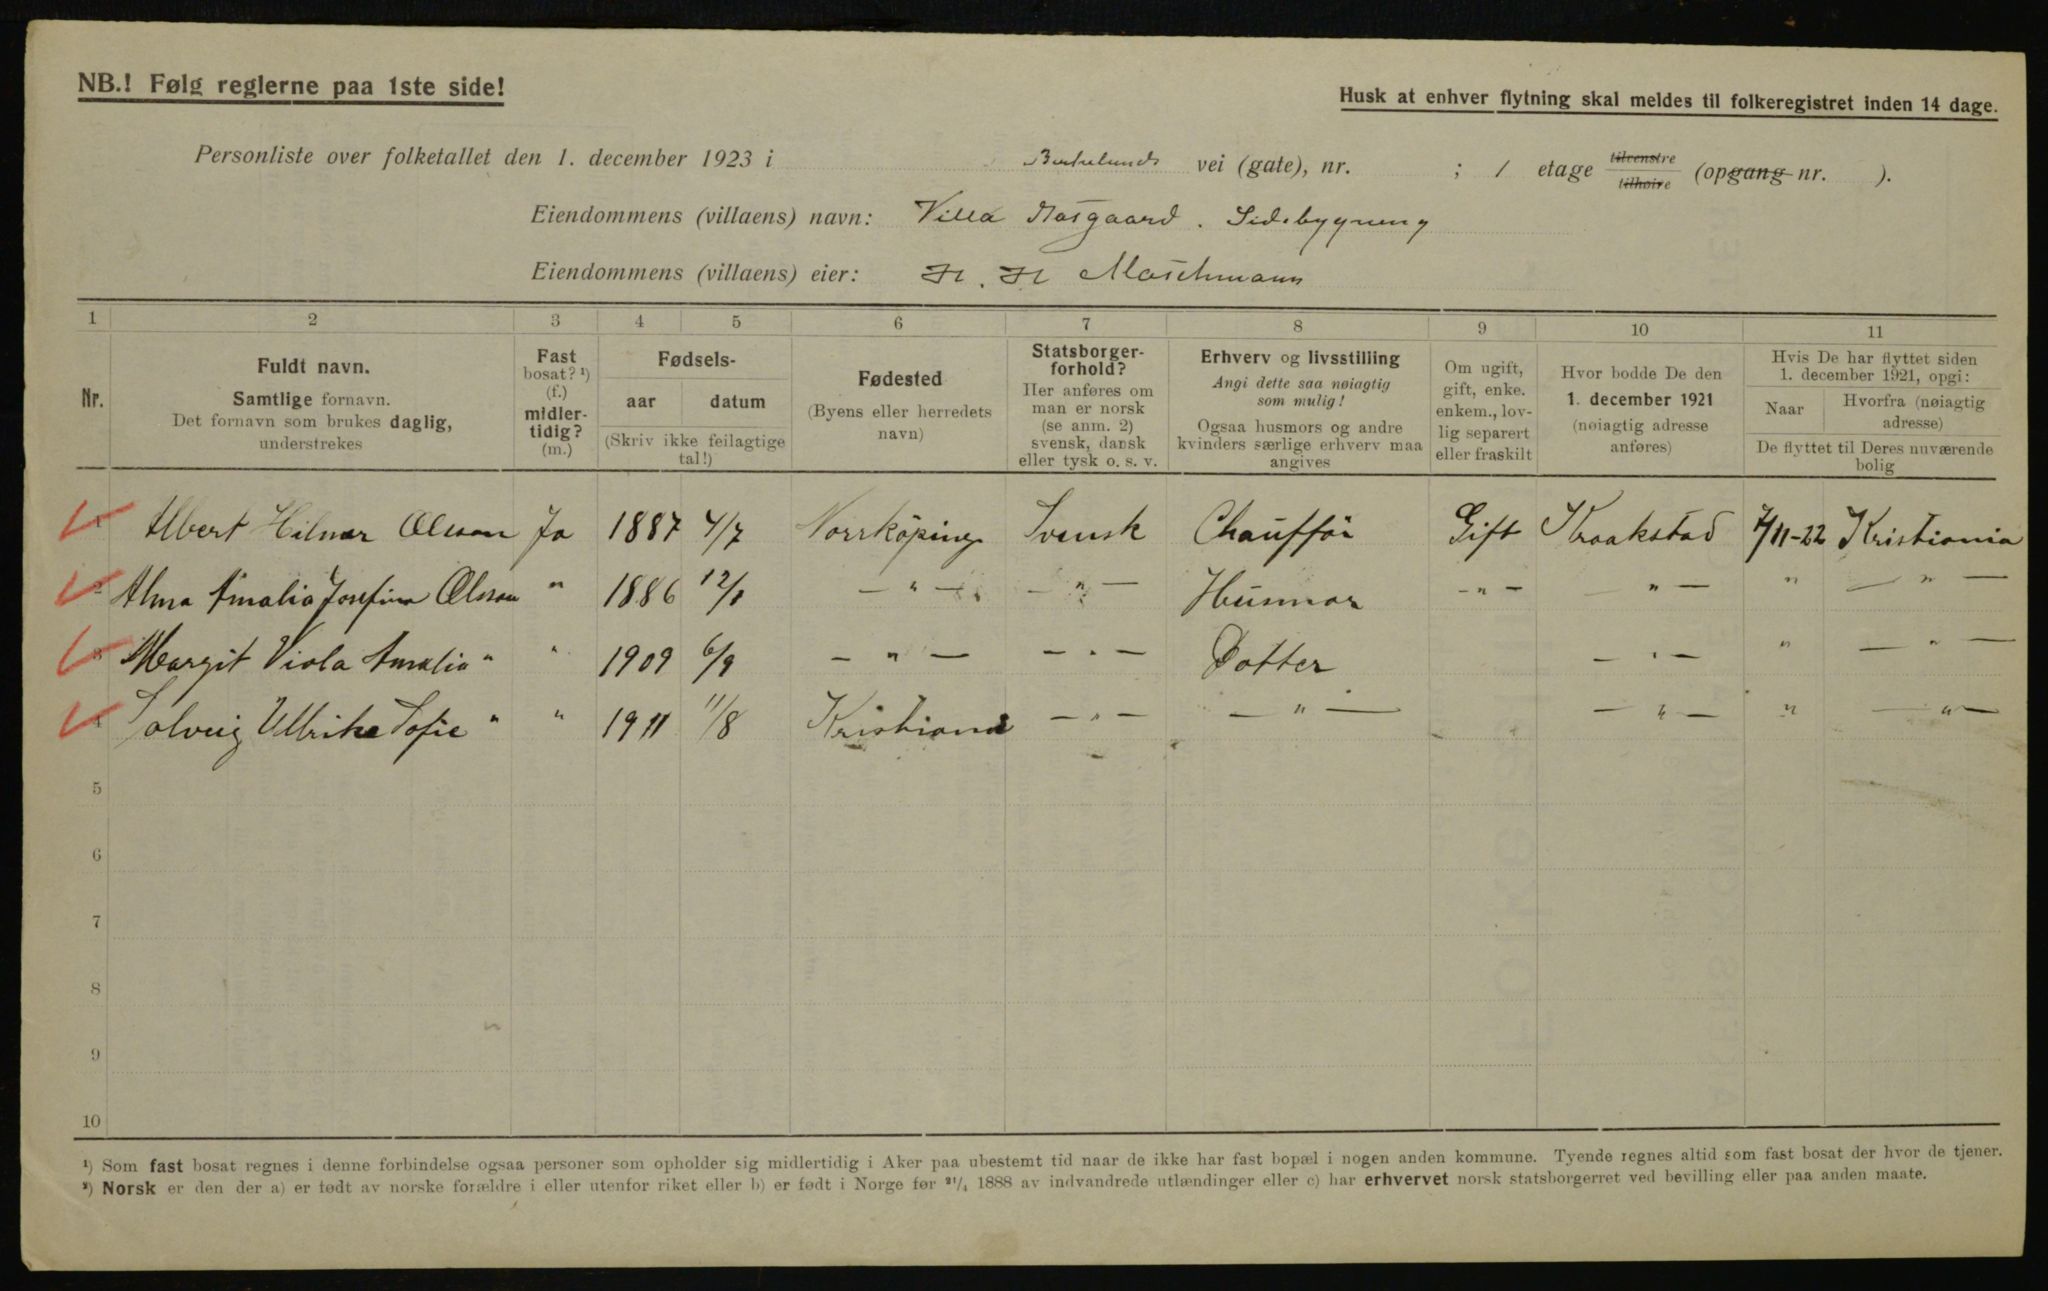 NB.! Følg reglerne paa 1ste side!
Husk at enhver flytning skal meldes til folkeregistret inden 14 dage.
Personliste over folketallet den 1. december 1923 i Birkelunds vei (gate), nr. ; 1 etage tilvenstre tilhøire (opgang nr. ).
Eiendommens (villaens) navn: Villa Sidebygning
Eiendommens (villaens) eier: H. H Maschmann
1 2 3 4 5 6 7 8 9 10 11
Nr.
Fuldt navn.
Samtlige fornavn.
Det fornavn som brukes daglig,
understrekes
Fast
bosat? ¹)
(f.)
midler-
tidig?
(m.)
Fødsels-
aar datum
(Skriv ikke feilagtige
tal!)
Fødested
(Byens eller herredets
navn)
Statsborger-
forhold?
Her anføres om
man er norsk
(se anm. 2)
svensk, dansk
eller tysk o. s. v.
Erhverv og livsstilling
Angi dette saa nøiagtig
som mulig!
Ogsaa husmors og andre
kvinders særlige erhverv maa
angives
Om ugift,
gift, enke.
enkem., lov-
lig separert
eller fraskilt
Hvor bodde De den
1. december 1921
(nøiagtig adresse
anføres)
Hvis De har flyttet siden
1. december 1921, opgi:
Naar
Hvorfra (nøiagtig
adresse)
De flyttet til Deres nuværende
bolig
1 Albert Hilmar Olsson Ja 1887 4/7 Norrköping Svensk Chaufför Gift Kraakstad 7/11-22 Kristiania
2 Alma Amalia Josefina Olsson " 1886 12/1 — " — — " — Husmor — " — — " — " — " —
3 Margit Viola Amalia " " 1909 6/9 — " — — " — Dotter — " — " — " —
4 Solveig Ullrike Sofie " " 1911 11/8 Kristiania — " — — " — — " — " — " —
5
6
7
8
9
10
¹) Som fast bosat regnes i denne forbindelse ogsaa personer som opholder sig midlertidig i Aker paa ubestemt tid naar de ikke har fast bopæl i nogen anden kommune. Tyende regnes altid som fast bosat der hvor de tjener.
²) Norsk er den der a) er født av norske forældre i eller utenfor riket eller b) er født i Norge før ²¹/₄ 1888 av indvandrede utlændinger eller c) har erhvervet norsk statsborgerret ved bevilling eller paa anden maate.